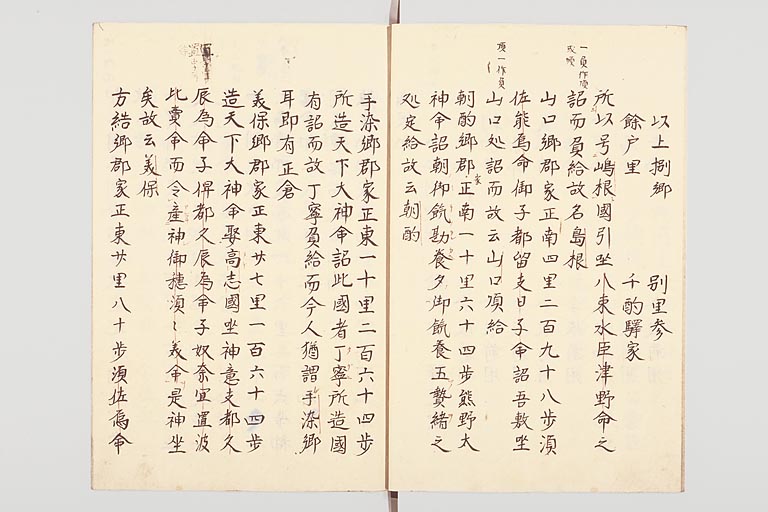 以上捌郷 別里参
餘户里 千酌驛家
所以号嶋根國引坐八束水臣津野命之
詔而負給故名島根
山口郷郡家正南四里二百九十八步湏
佐能烏命御子都留支日子命詔吾敷坐
山口処詔而故云山口項給
朝酌郷郡家正南一十里六十四步熊野大
神命詔朝御餼勘養夕御餼養五贄緒之
処定給故云朝酌
手染郷郡家正東一十里二百六十四步
所造天下大神命詔此國者丁寧所造國
有詔而故丁寧負給而今人猶謂手染郷
耳即有正倉
義保郷郡家正東廿七里一百六十四步
造天下大神命娶高志國坐神意支都久
辰為命子俾都久辰為命子奴奈宜置波
比賣命而令産神御穗湏〻義命是神坐
矣故云義保
方結郷郡家正東廿里八十步湏佐烏命